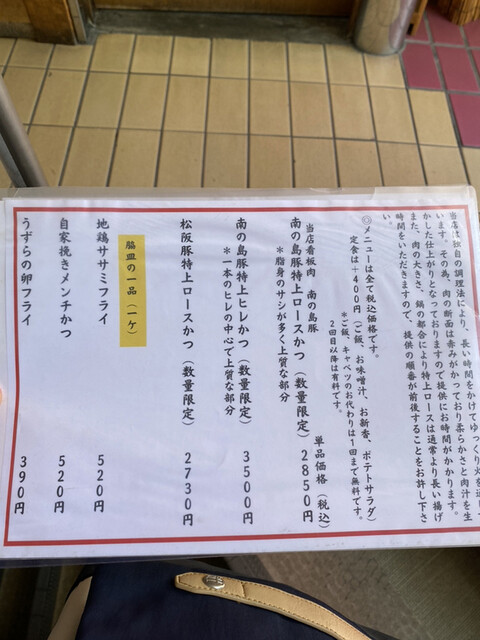 当店は独自の調理法により、長い時間をかけてゆっくり火を通し
います。その為、肉の断面は赤みがかっており柔らかさと肉汁を生
かした仕上がりとなっておりますので提供にお時間がかかります。
また、肉の大きさ、鍋の都合により特上ロースは通常より長い揚げ
時間をいただきますので、提供の順番が前後することをお許し下さ
い。
◎メニューは全て税込価格です。
定食は+400円(ご飯、お味噌汁、お新香、ポテトサラダ)
*ご飯、キャベツのお代わりは1回まで無料です。
2回目以降は有料です。
単品価格(税込)
当店看板肉 南の島豚
南の島豚特上ロースかつ(数量限定)2850円
*脂身のサシが多く上質な部分
南の島豚特上ヒレかつ(数量限定)3500円
*一本のヒレの中心で上質な部分
松阪豚特上ロースかつ(数量限定)2730円
脇皿の一品(一ケ)
地鶏ササミフライ 520円
自家挽きメンチかつ 520円
うずらの卵フライ 390円